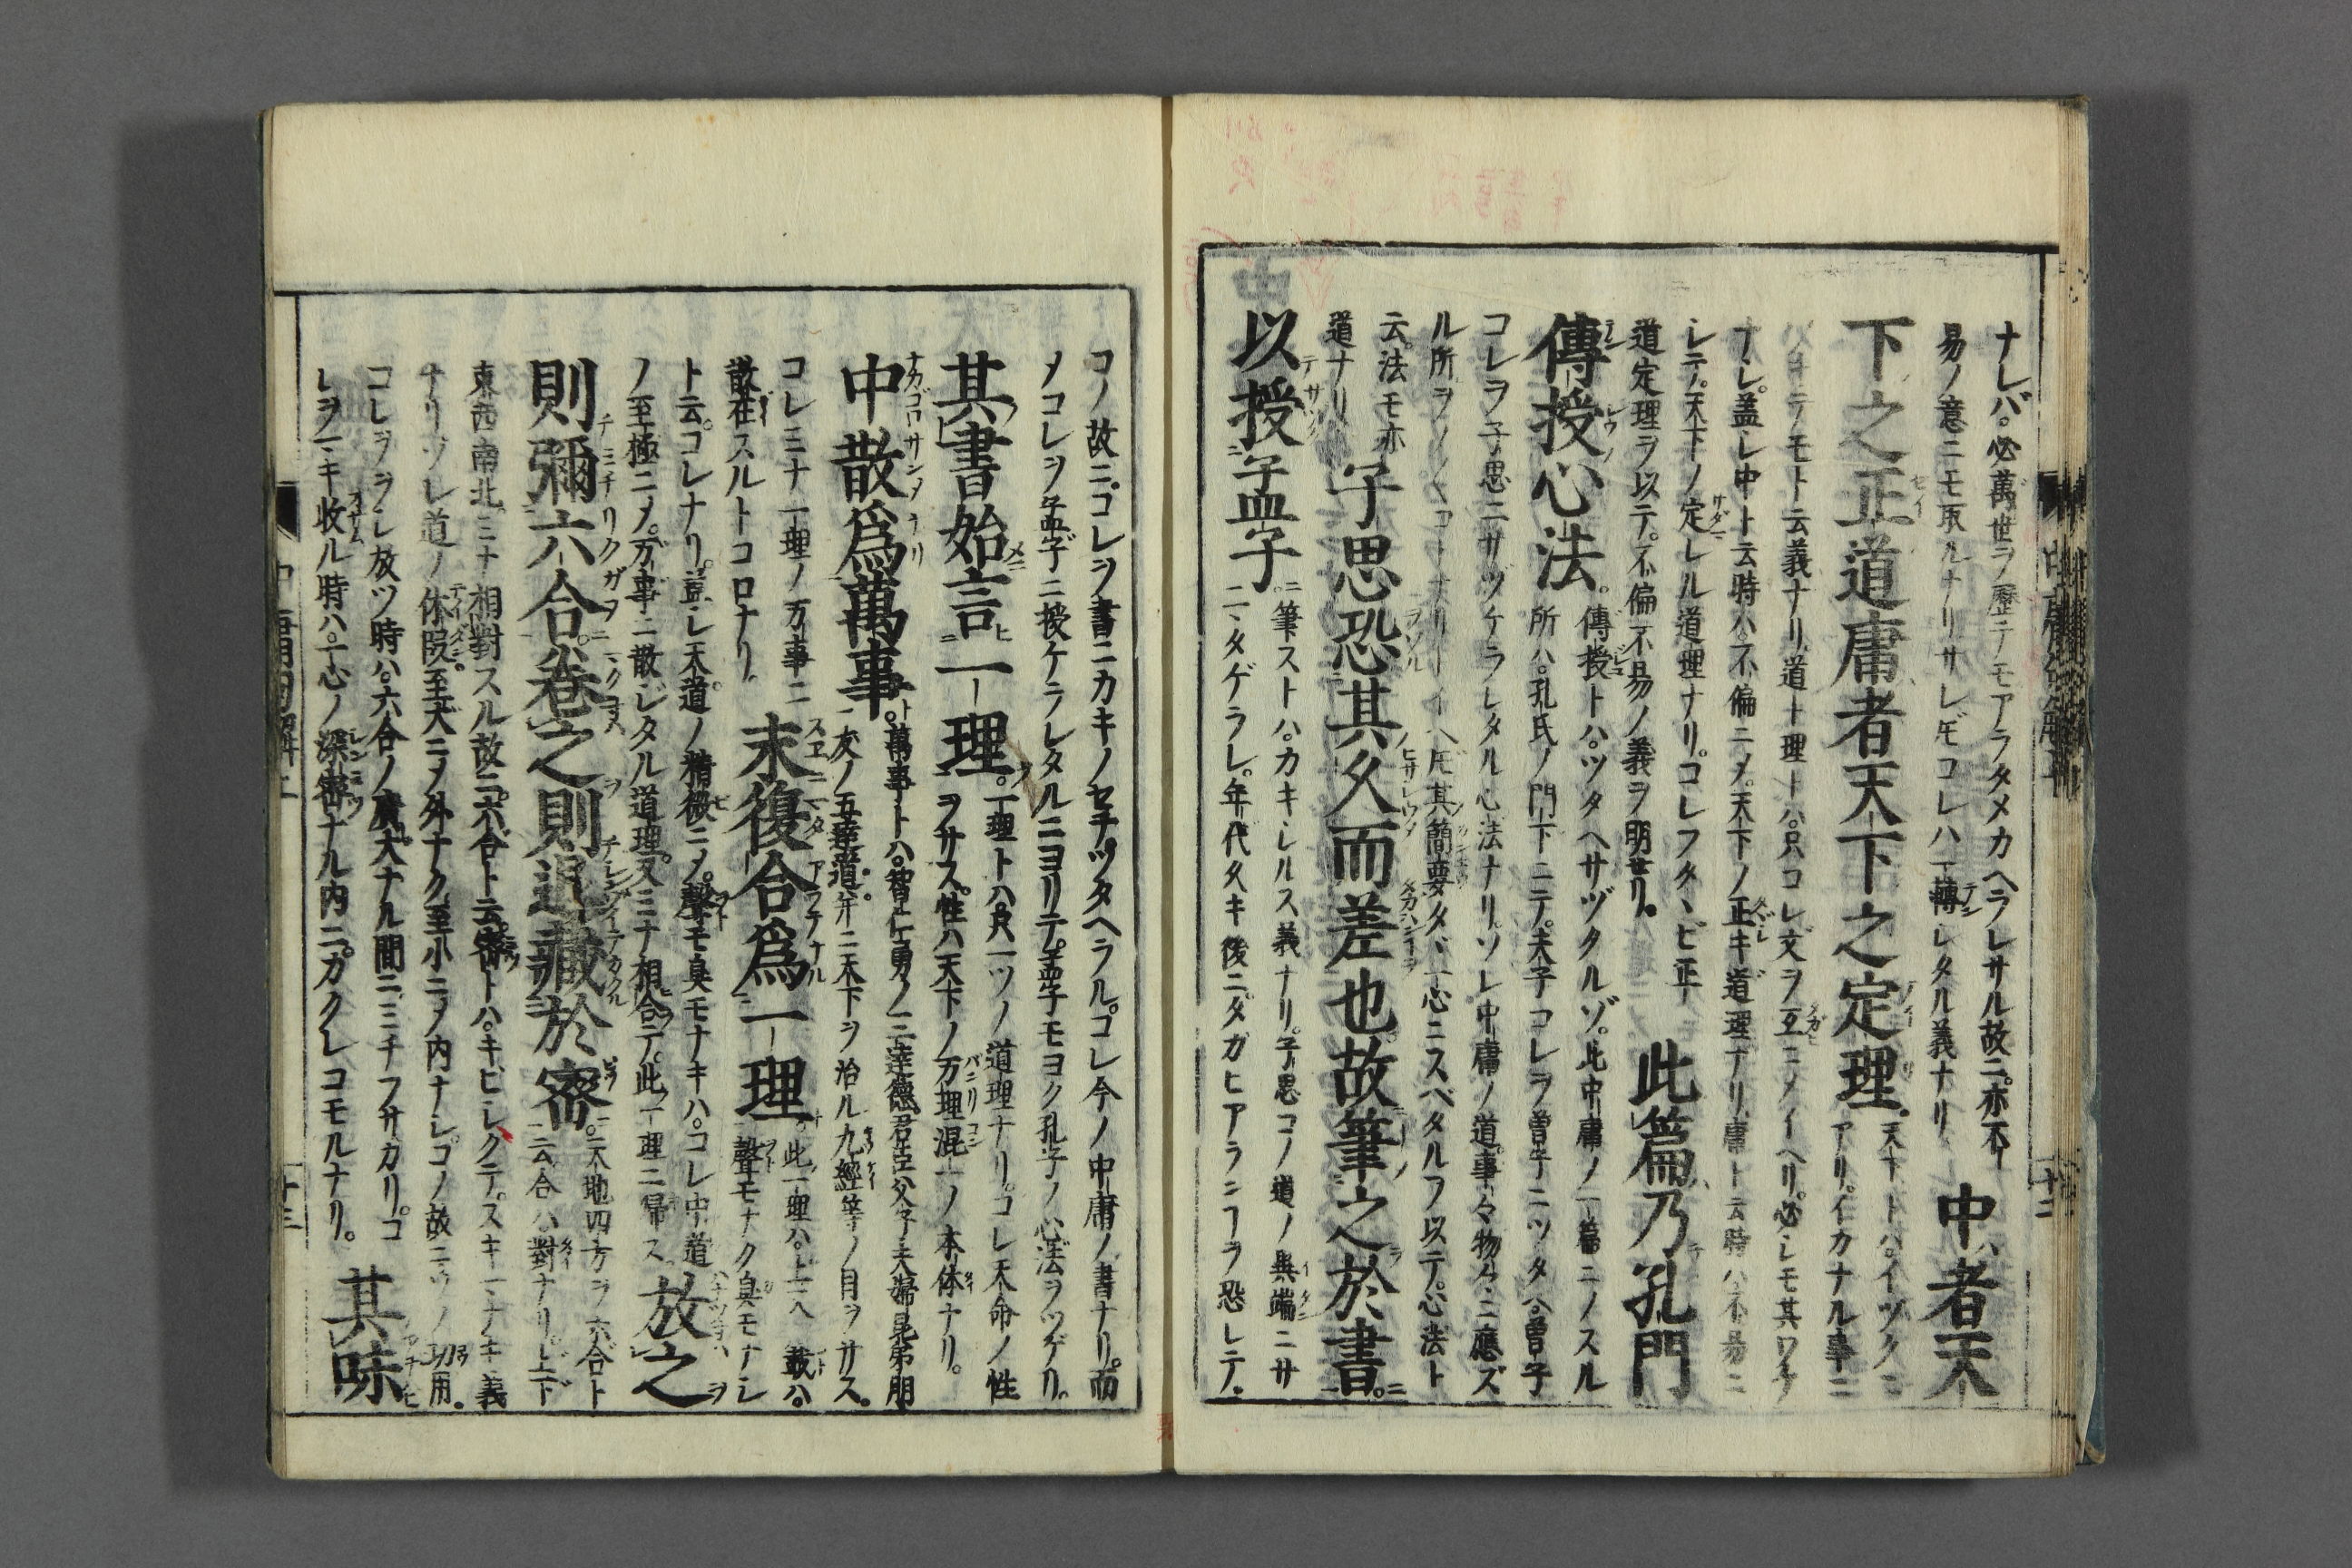 ナレバ。必萬世ヲ歴テモアラタメカヘラレサル故ニ。亦不
易ノ意ニモ取ルナリサレ𪜈コレハ一轉レタル義ナリ
中者天
下之正道庸者天下之定理
天下トハ。イヅクニ
アリ。イカナル事ニ
テモト云義ナリ。道ト理トハ。只コレ文ヲ互ニメイヘリ。必レモ其ワケ
ナレ。蓋レ中ト云時ハ。不偏ニメ。天下ノ正キ道理ナリ。庸ト云時ハ不易ニ
レテ。天下ノ定レル道理ナリ。コレフタヽビ正
道定理ヲ以テ。不偏不易ノ義ヲ明セリ。
此篇乃孔門
傳授心法。
傳授トハ。ツタヘサヅクルゾ。此中庸ノ一篇ニノスル
所ハ。孔氏ノ門下ニテ。夫子コレヲ曽子ニツタヘ。曽子
コレヲ子思ニサヅケラレタル心法ナリ。ソレ中庸ノ道。事々物々ニ應ズ
ル所ヲノ
其簡要タヾ一心ニスベタルヲ以テ。心法ト
云。法モ亦
道ナリ
子思恐其久而差也故筆之於書。
以授孟子
筆ストハ。カキレルス義ナリ。子思コノ道ノ異端ニサ
マタゲラレ。年代久キ後ニタガヒアランヿヲ恐レテ。
コノ故ニ。コレヲ書ニカキノセテ。ツタヘラル。コレ今ノ中庸ノ書ナリ。而
メコレヲ孟子ニ授ケラレタルニヨリテ。孟子モヨク孔子ノ心法ヲツゲリ。
其書始言一理。
一理トハ只一ツノ道理ナリ。コレ天命ノ性
ヲサス。性ハ天下ノ万理混一ノ本体ナリ。
中散爲萬事。
萬事トハ。智仁勇ノ三達德君臣父子夫婦昆弟朋
友ノ五達道。并ニ天下ヲ治ル九經等ノ目ヲサス。
コレミナ一理ノ万事ニ
散在スルトコロナリ
末復合爲一理
此一理ハ。上天ノ載ハ。
聲モナク臭モナレ
ト云。コレナリ。蓋レ天道ノ精微ニメ。聲モ臭モナキハ。コレ中道
ノ至極ニメ。万事ニ散レタル道理。又ミナ相合テ。此一理ニ帰ス
放之
則彌六合。卷之則退藏於密
天地四方ヲ六合ト
云合ハ對ナリ。上下
東西南北。ミナ相對スル故ニ。六合ト云。密トハ。キビレクテ。スキマナキ義
ナリソレ道ノ休段。至大ニメ外ナク至小ニメ内ナレ。コノ故ニソノ功用。
コレヲヲレ放ツ時ハ。六合ノ廣大ナル間ニミチフサカリ。コ
レヲマキ收ル時ハ。一心ノ深密ナル内ニ。カクレコモルナリ。
其味